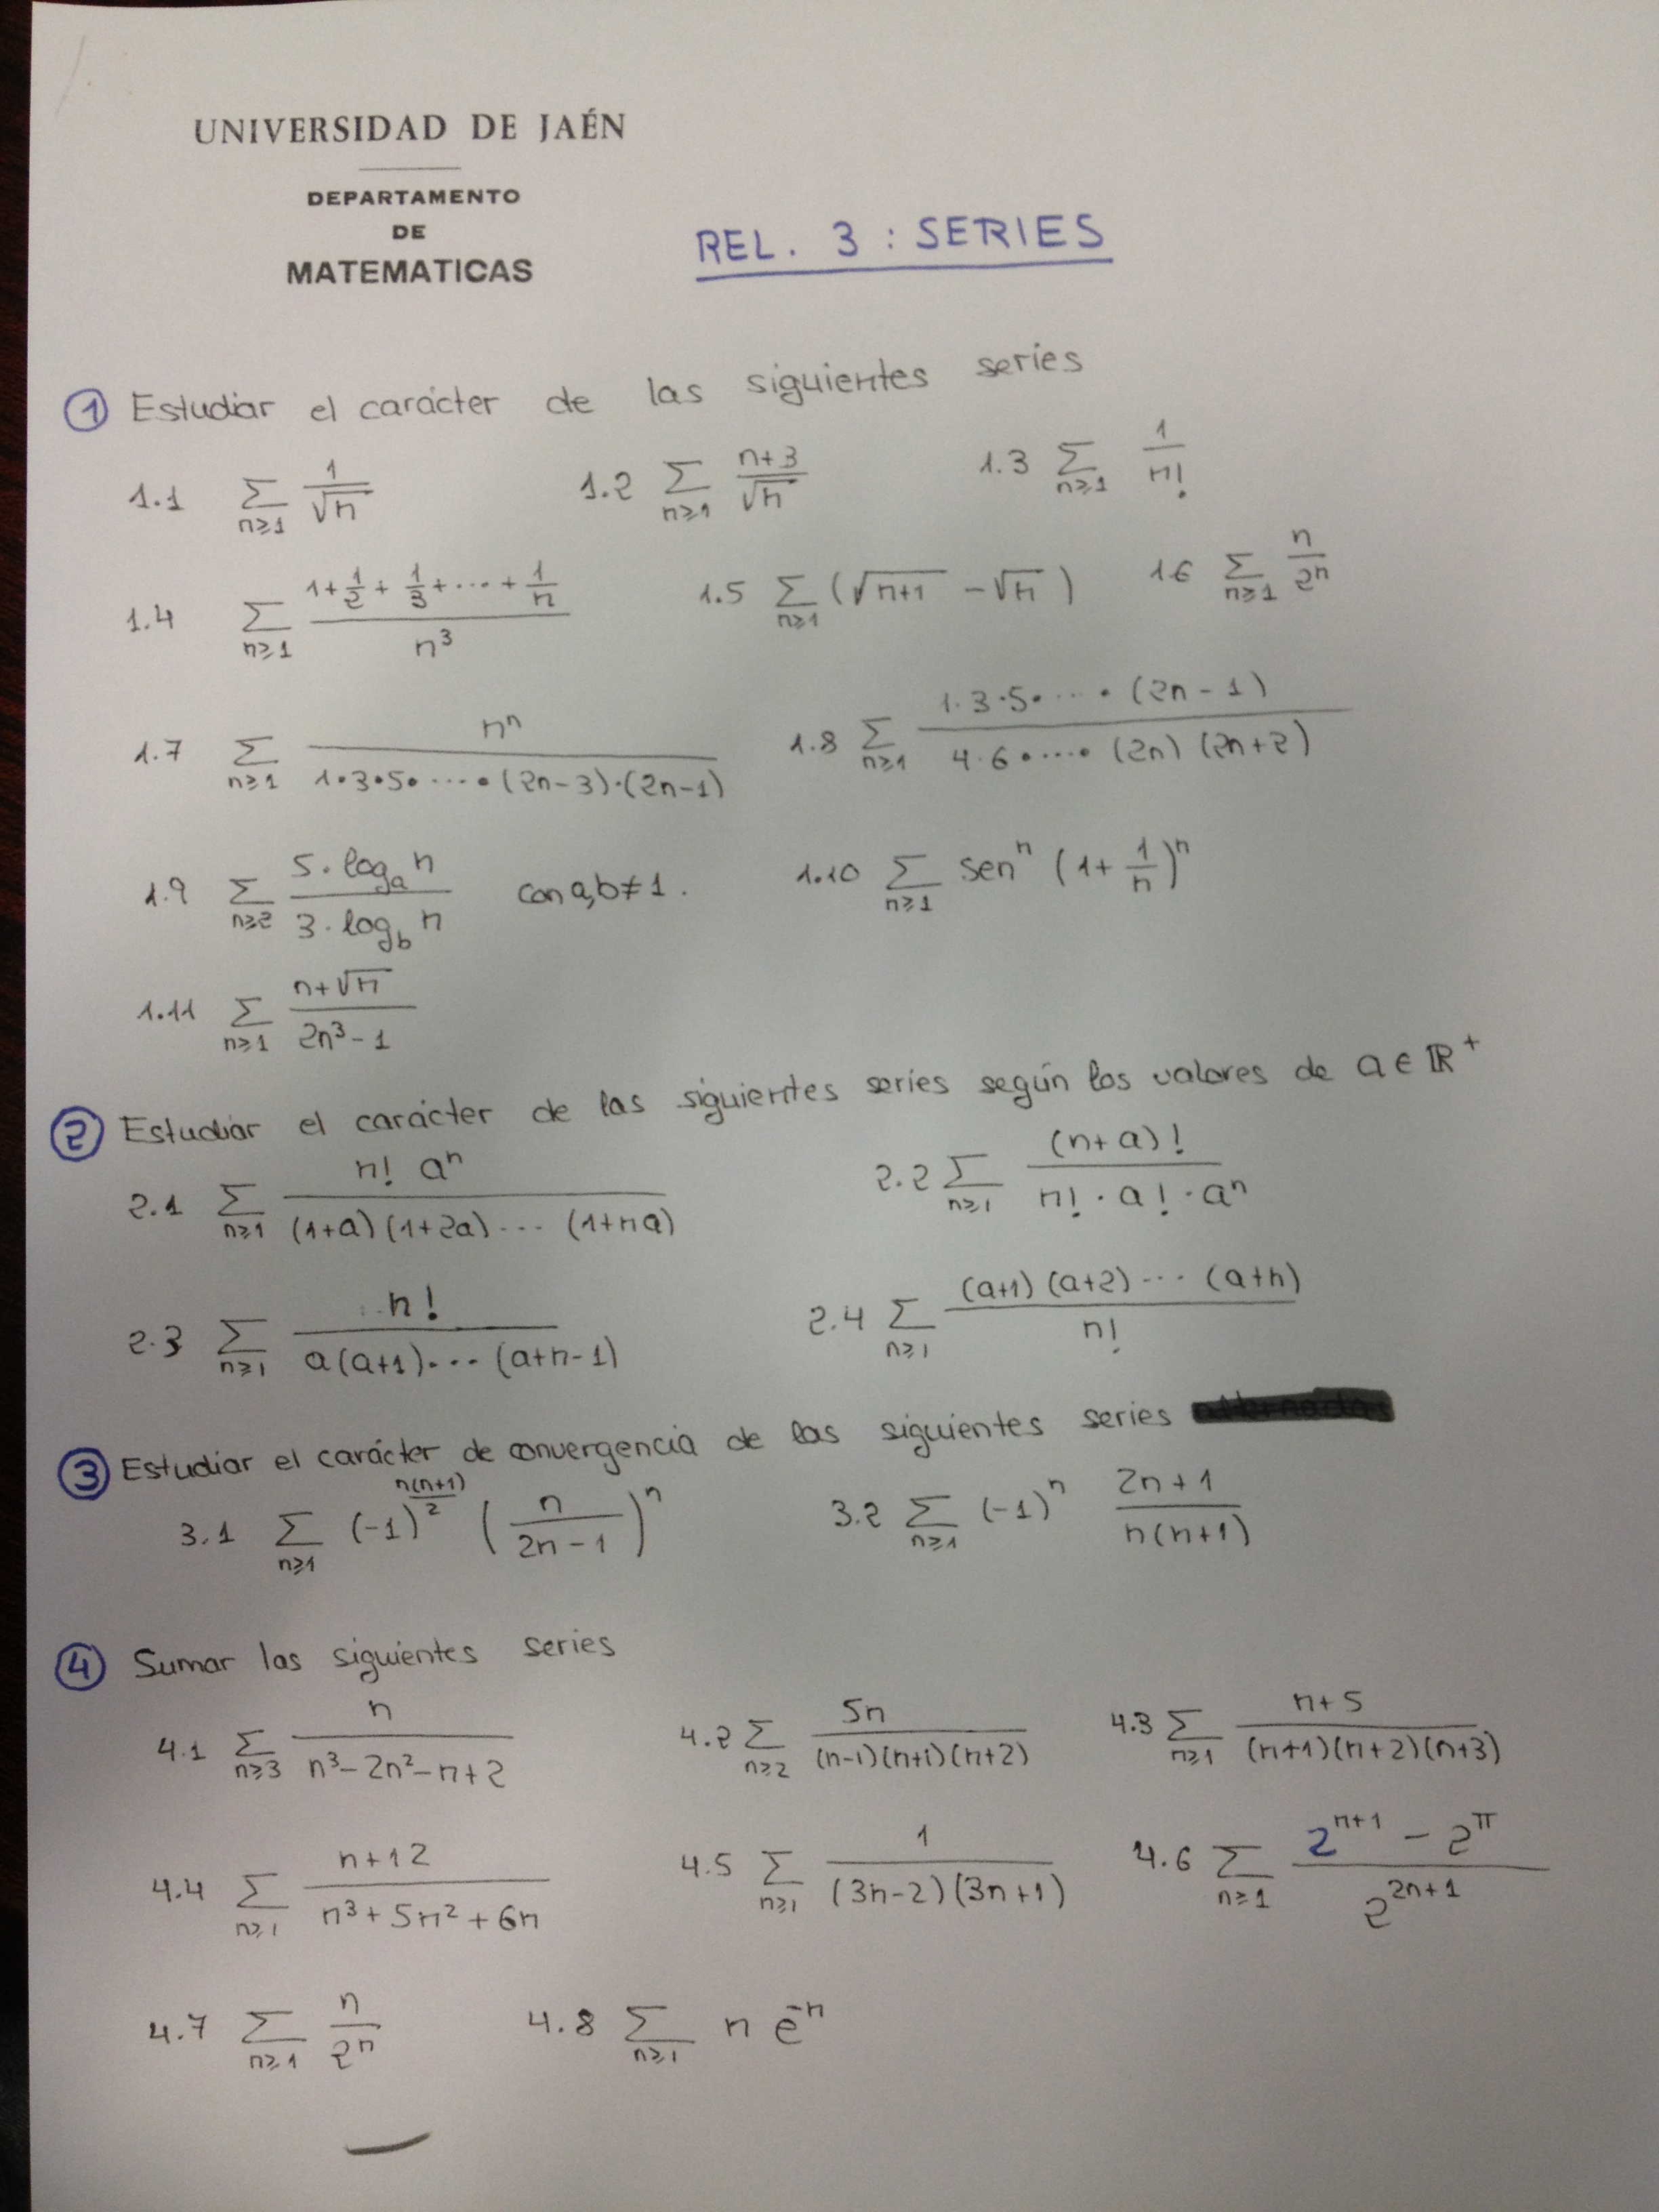 UNIVERSIDAD DE JAÉN
DEPARTAMENTO
DE
MATEMATICAS
REL. 3 : SERIES
① Estudiar el carácter de las siguientes series
1.1 ∑_{n≥1} 1/√n   1.2 ∑_{n≥1} (n+3)/√n   1.3 ∑_{n≥1} 1/n!
1.4 ∑_{n≥1} (1+1/2+1/3+⋯+1/n)/n³   1.5 ∑_{n≥1} (√(n+1) − √n)   1.6 ∑_{n≥1} n/2ⁿ
1.7 ∑_{n≥1} nⁿ/(1·3·5·⋯·(2n-3)·(2n-1))   1.8 ∑_{n≥1} (1·3·5·⋯·(2n-1))/(4·6·⋯·(2n)(2n+2))
1.9 ∑_{n≥2} (5·log_a n)/(3·log_b n)   con a,b≠1.   1.10 ∑_{n≥1} senⁿ (1+1/n)ⁿ
1.11 ∑_{n≥1} (n+√n)/(2n³-1)
② Estudiar el carácter de las siguientes series según los valores de a∈ℝ⁺
2.1 ∑_{n≥1} (n! aⁿ)/((1+a)(1+2a)⋯(1+na))   2.2 ∑_{n≥1} (n+a)!/(n!·a!·aⁿ)
2.3 ∑_{n≥1} n!/(a(a+1)⋯(a+n-1))   2.4 ∑_{n≥1} ((a+1)(a+2)⋯(a+n))/n!
③ Estudiar el carácter de convergencia de las siguientes series
3.1 ∑_{n≥1} (-1)^{n(n+1)/2} (n/(2n-1))ⁿ   3.2 ∑_{n≥1} (-1)ⁿ (2n+1)/(n(n+1))
④ Sumar las siguientes series
4.1 ∑_{n≥3} n/(n³-2n²-n+2)   4.2 ∑_{n≥2} 5n/((n-1)(n+1)(n+2))   4.3 ∑_{n≥1} (n+5)/((n+1)(n+2)(n+3))
4.4 ∑_{n≥1} (n+12)/(n³+5n²+6n)   4.5 ∑_{n≥1} 1/((3n-2)(3n+1))   4.6 ∑_{n≥1} (2^{n+1} − 2^π)/2^{2n+1}
4.7 ∑_{n≥1} n/2ⁿ   4.8 ∑_{n≥1} n e^{-n}